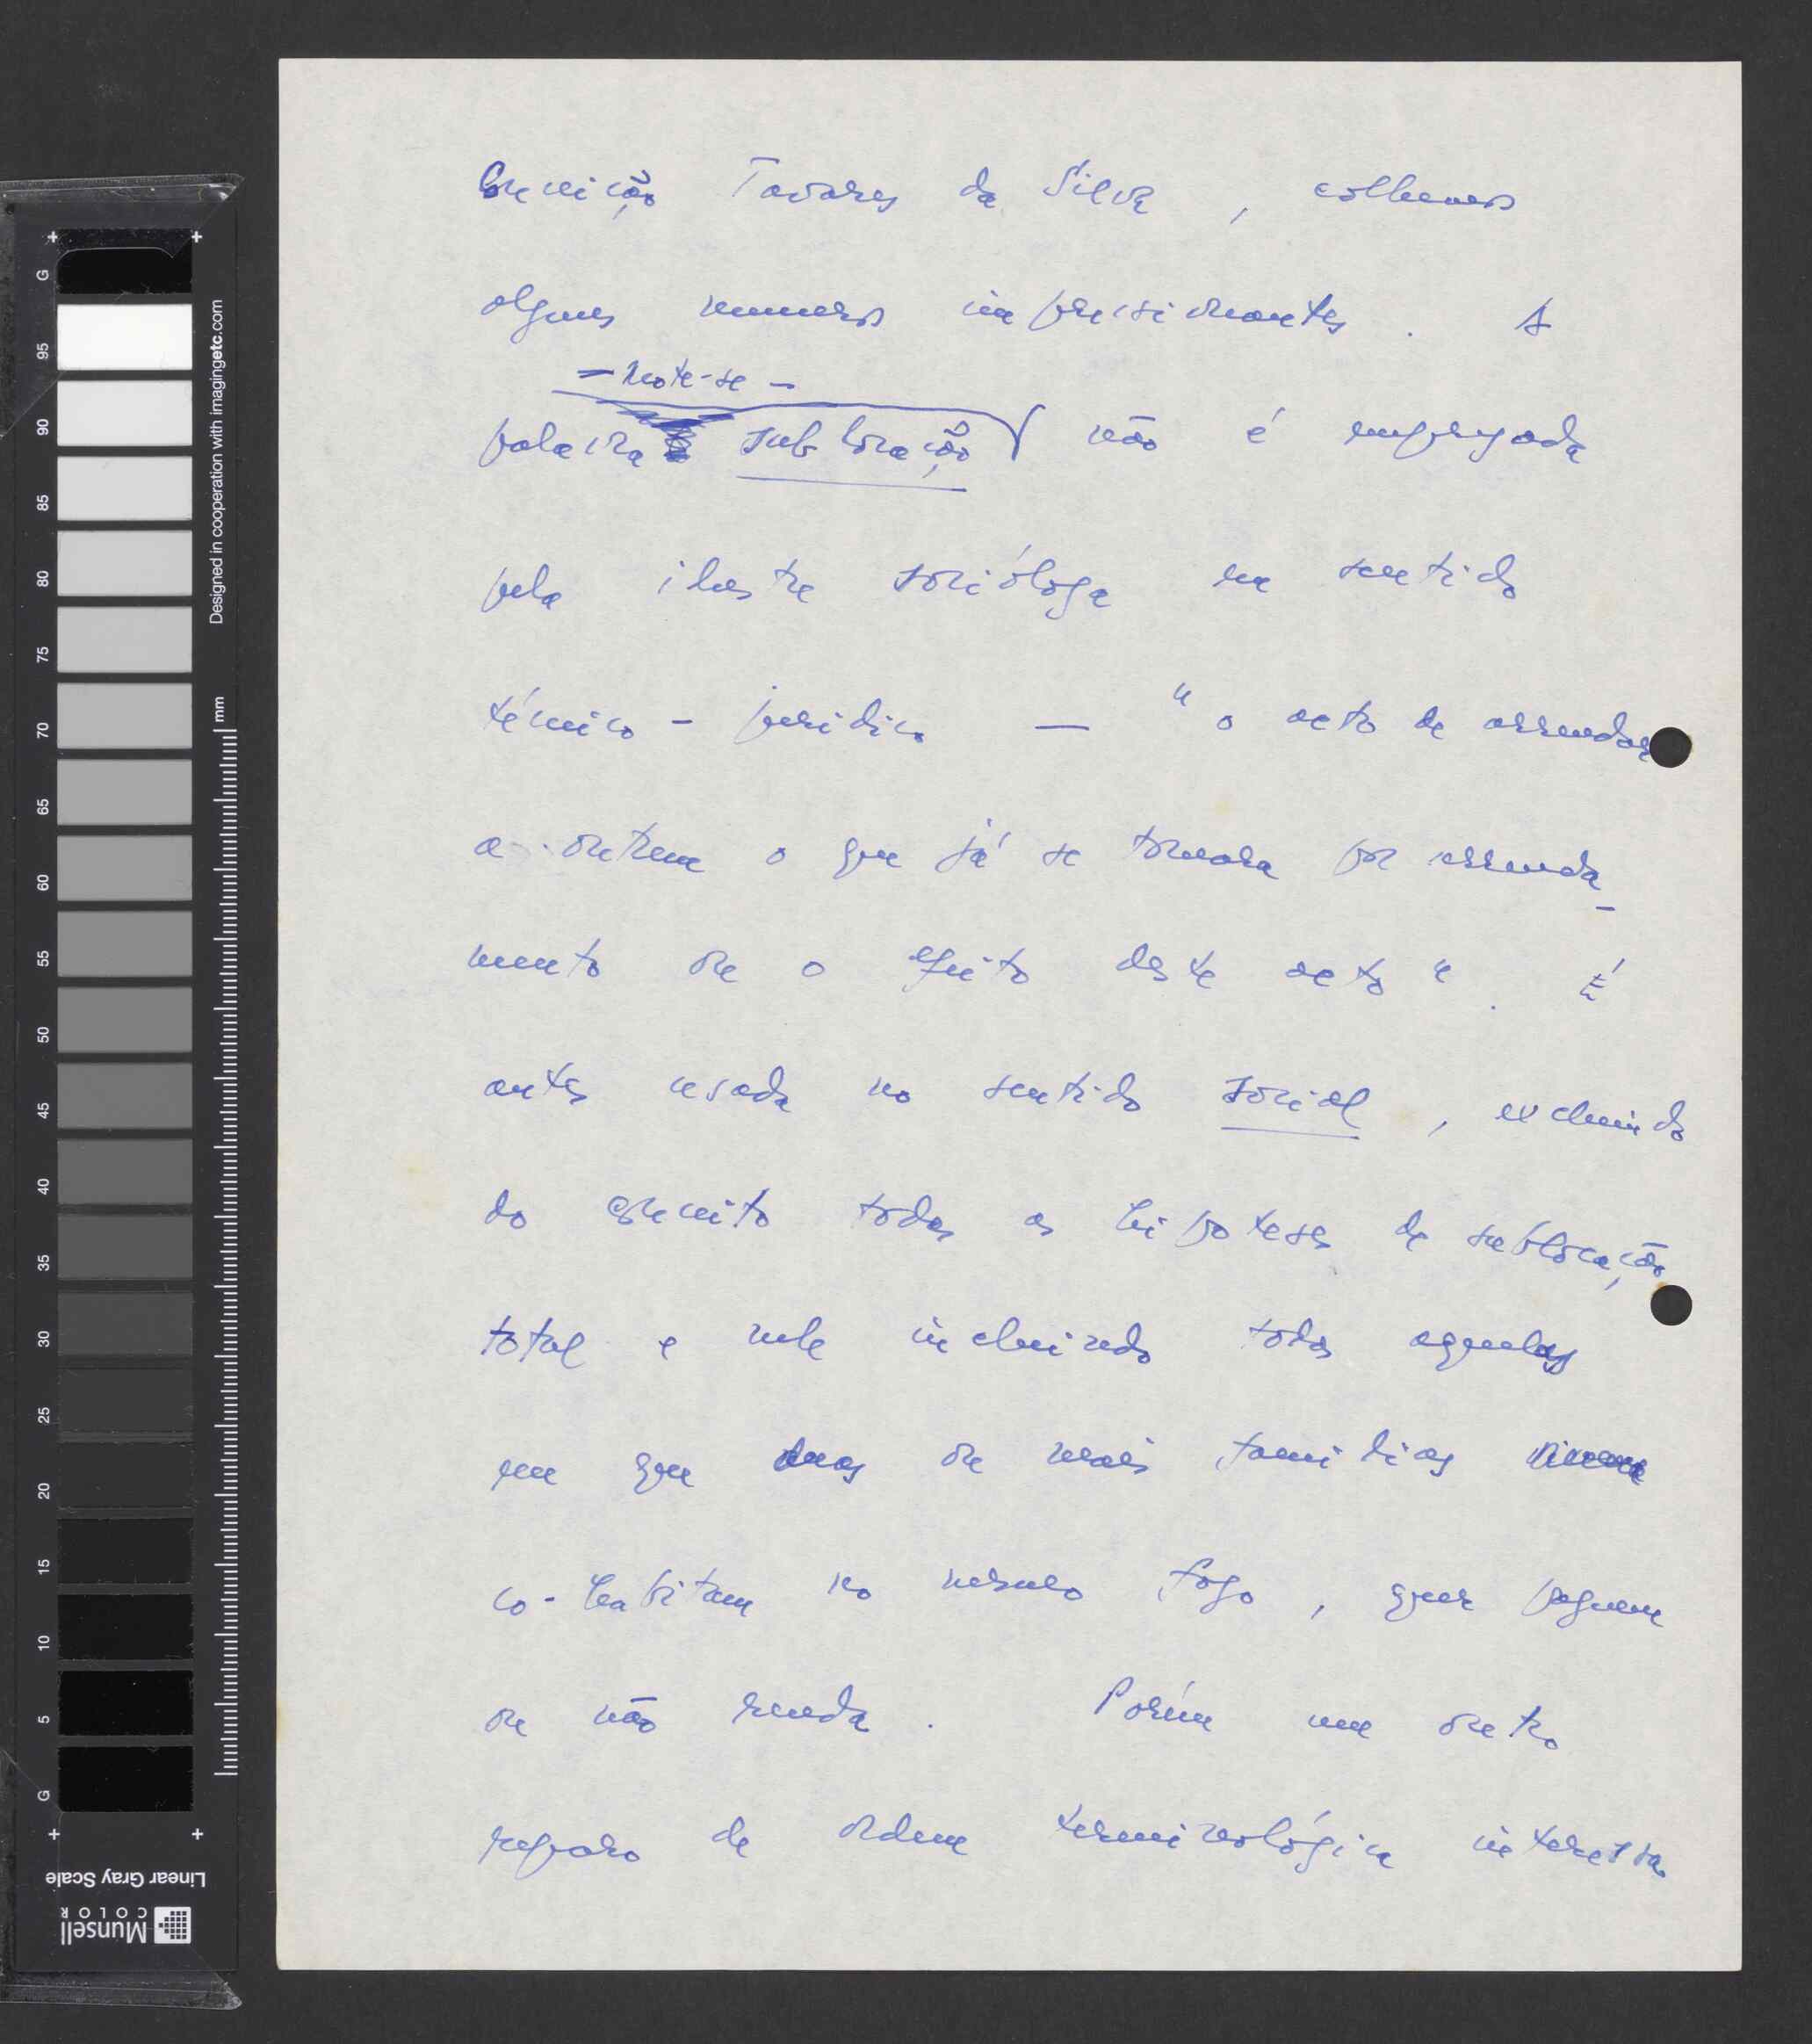 Conceição Tavares da Silva, colhemos
alguns numeros impressionantes. A
- note-se -
palavra sublocação não é empregada
pela ilustre socióloga em sentido
técnico-juridico — "o acto de arrendar
a outrem o que já se tomara por arrenda-
mento ou o efeito deste acto". É
antes usada no sentido social, excluindo
do conceito todas as hipoteses de sublocação
total e nele incluindo todas aquelas
em que duas ou mais familias
co-habitam no mesmo fogo, quer paguem
ou não renda. Porém um outro
reparo de ordem terminológica interessa
G
95
90
85
80
75
70
65
60
55
50
45
40
35
30
25
20
15
10
5
G
Designed in cooperation with imagingetc.com
mm
Linear Gray Scale
Munsell
COLOR